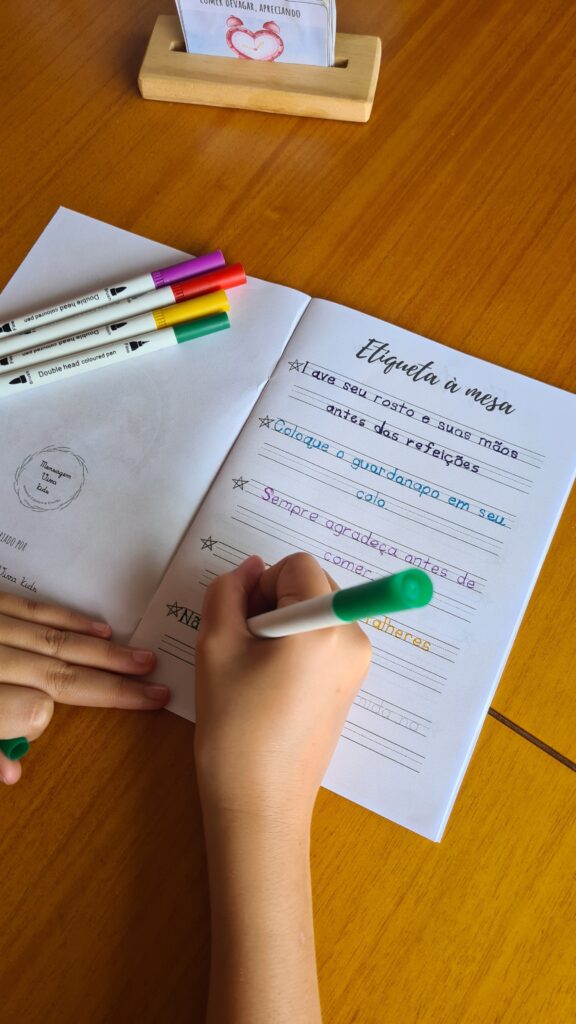 COMER DEVAGAR, APRECIANDO
Double head coloured pen
Double head coloured pen
Double head coloured pen
Double head coloured pen
Mensagem
Viva
kids
RIADO POR
Viva kids
Etiqueta à mesa
Lave seu rosto e suas mãos
antes das refeições
Coloque o guardanapo em seu
colo
Sempre agradeça antes de
comer
talheres
Nã
mida na